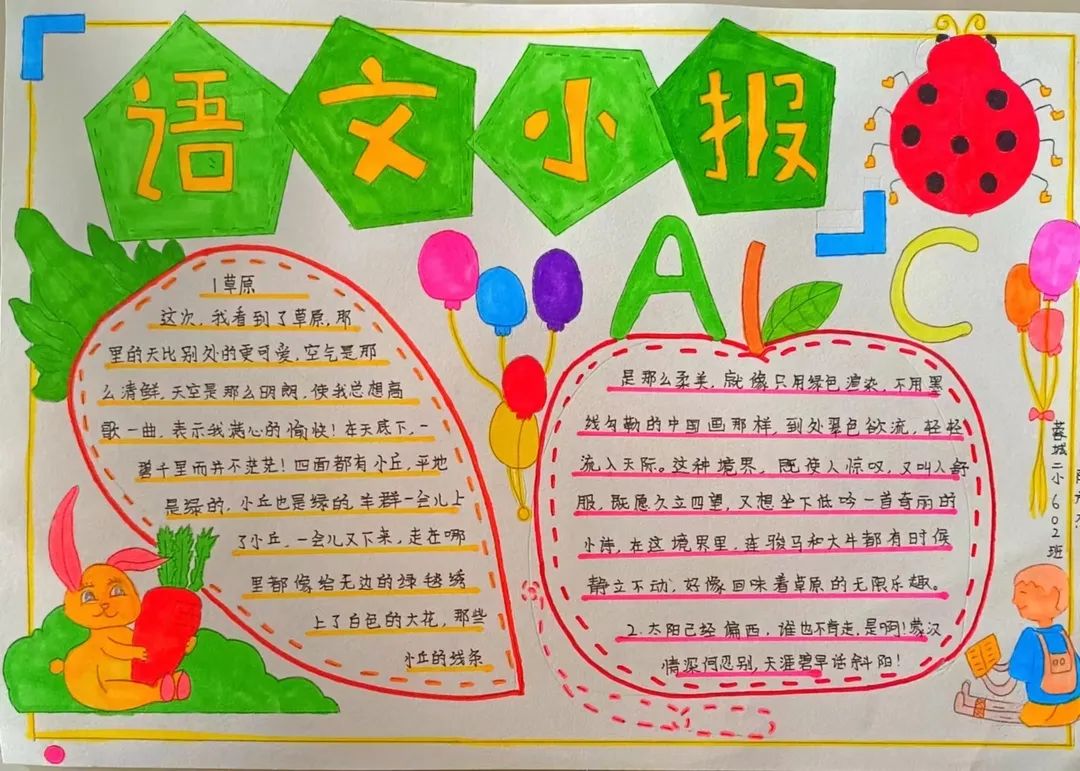 语文小报
ALC
1草原
这次，我看到了草原，那
里的天比别处的更可爱，空气是那
么清鲜，天空是那么明朗，使我总想高
歌一曲，表示我满心的愉快！在天底下，一
碧千里而并不茫茫！四面都有小丘，平地
是绿的，小丘也是绿的。羊群一会儿上
了小丘，一会儿又下来，走在哪
里都像给无边的绿毯绣
上了白色的大花，那些
小丘的线条
是那么柔美，就像只用绿色渲染，不用墨
线勾勒的中国画那样，到处翠色欲流，轻轻
流入天际。这种境界，既使人惊叹，又叫人舒
服，既愿久立四望，又想坐下低吟一首奇丽的
小诗，在这境界里，连骏马和大牛都有时候
静立不动，好像回味着草原的无限乐趣。
2.太阳已经偏西，谁也不肯走，是啊！蒙汉
情深何忍别，天涯碧草话斜阳！
蓉城二小602班